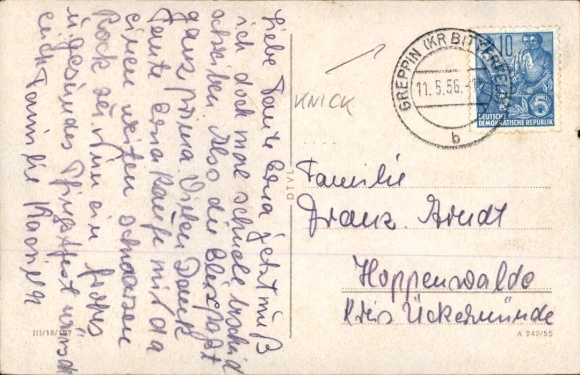 Liebe Tante Erna jetzt muß
ich doch mal schnell bescheid
schreiben. Also die paßt
ganz prima. Vielen Dank
Tante Erna kaufe mir da
einen weiten schwarzen
Rock zu. Nun ein frohes
u. gesundes Pfingstfest wünscht
euch Familie
III/18/197
DTVL
KNICK
GREPPIN (KR BITTERFELD)
11.5.56.-1
b
10
5
DEUTSCHE
DEMOKRATISCHE REPUBLIK
Familie
Franz Arndt
Hoppenwalde
Kreis Ückermünde
A 249/55